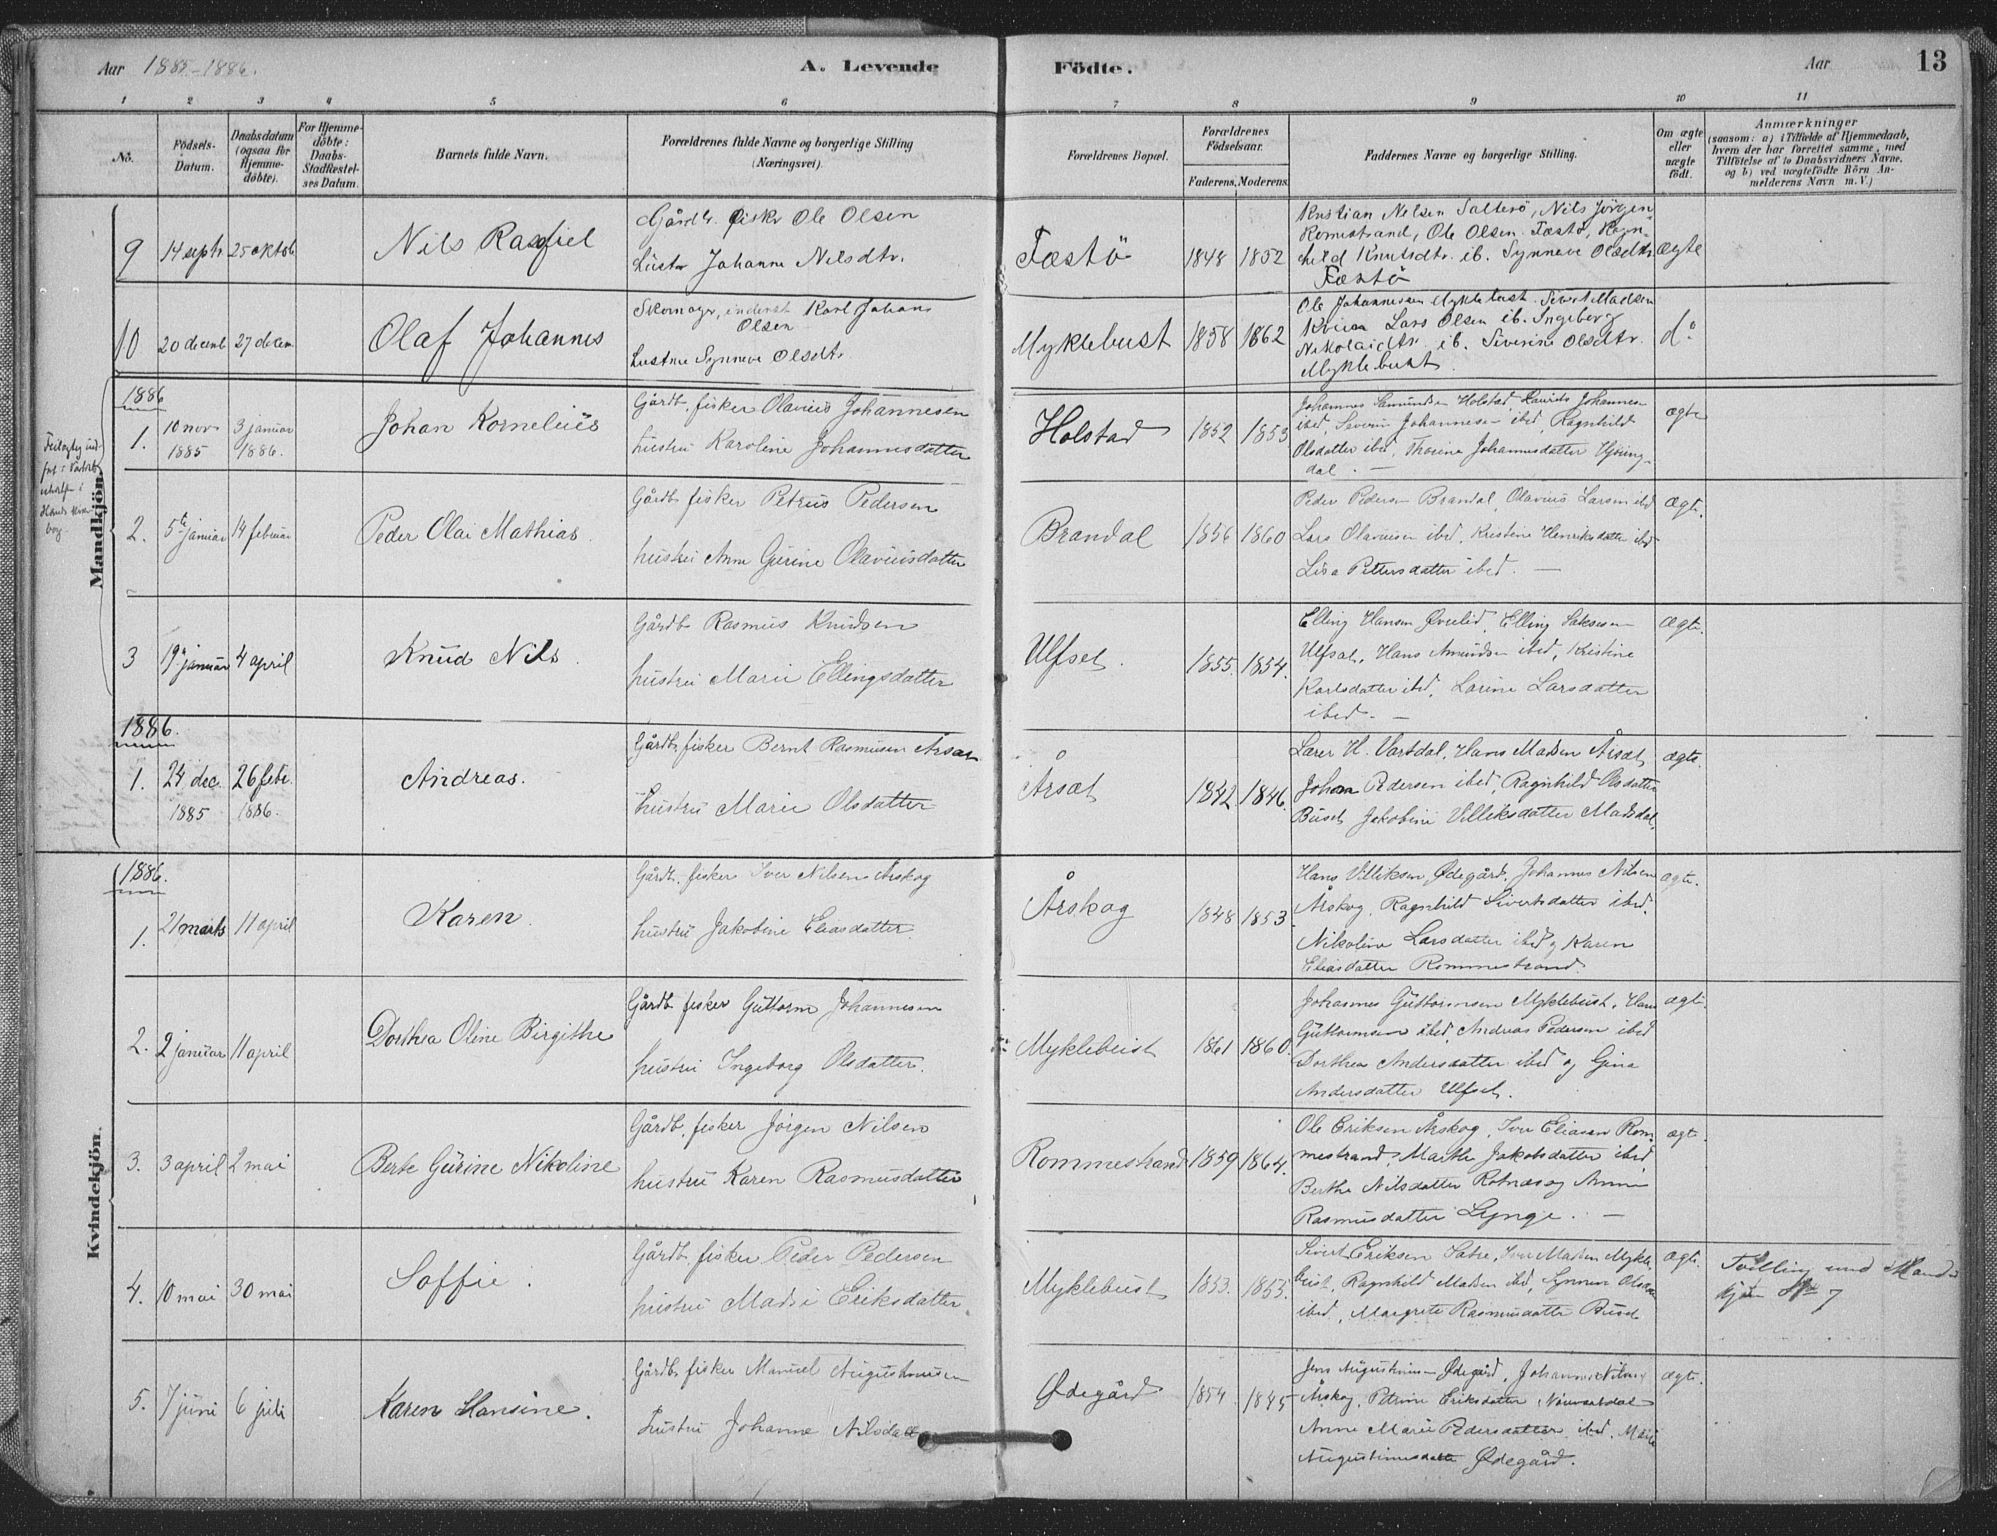 Aar 1885-1886. A. Levende Födte. Aar 13
1 2 3 4 5 6 7 8 9 10 11
No. Födsels-Datum. Daabsdatum (ogsaa for Hjemme-döbte). For Hjemme-döbte: Daabs-Stadfæstel-ses Datum. Barnets fulde Navn. Forældrenes fulde Navne og borgerlige Stilling (Næringsvei). Forældrenes Bopæl. Forældrenes Födselsaar. Faderens. Moderens. Faddernes Navne og borgerlige Stilling. Om ægte eller uægte födt. Anmærkninger
(saasom: a) i Tilfælde af Hjemmedaab,
hvem der har forrettet samme, med
Tilföielse af to Daabsvidners Navne,
og b) ved uægtefödte Börn An-
melderens Navn m. V.)
Mandkjön.
9 14 septr 25 oktob Nils Rasfiel Gårdbr. fisker Ole Olsen
Hustr Johanne Nilsdtr. Fæstö 1848 1852 ægte
Kristian Nelsen Salterö, Nils Jörgen
Romestrand, Ole Olsen Fæstö, Ragn-
hild Knutsdtr. ib. Synneve Olsdtr.
Fæstö
10 20 decemb 27 decem. Olaf Johannes Skomager, inderst Karl Johans
Olsen
Hustru Synneve Olsdtr Myklebust 1858 1862 do
Ole Johannessen Myklebust. Sivert Madsen
Lars Olsen ib. Ingeborg
Nikolaidtr. ib. Siverine Olsdtr.
Myklebust
1886
1. 10 nov 1885 3 januar 1886. Johan Kornelius Gårdb. fisker Olavius Johannesen
hustru Karoline Johannesdatter Holstad 1852 1853 ægte
Johannes Holstad, Lauritz Johannesen
ibid, Severin Johannesen ibid, Ragnhild
Olsdatter ibid, Thorine Johannesdatter Hjöring-
dal. —
2. 5te januar 14 februar Peder Olai Mathias. Gårdb. fisker Petrus Pedersen
hustru Anne Gurine Olaviusdatter Brandal 1856 1860 ægte.
Peder Pedersen Brandal, Olavius Larsen ibid
Lars Olaviusen ibid, Kristine Henriksdatter ibid
Lisa Pettersdatter ibid. —
3 19 januar 4 april Knud Nils. Gårdb. Rasmus Knudsen
hustru Marie Ellingsdatter Ulfset. 1855. 1854. Ægte.
Elling Hansen Överlid, Elling
Ulfsat, Hans Amundsen ibid, Kristine
Karlsdatter ibid, Larine Larsdatter
ibid. —
1886.
1. 24 dec. 1885 26 febr. 1886. Andreas. Gårdb. fisker Bernt Rasmusen Årsat
hustru Marie Olsdatter Årsat 1842. 1846. ægte.
Lærer H. Vartdal, Hans Madsen Årsat,
Johan Pedersen ibid, Ragnhild Olsdatter
Buset Jakobine Villiksdatter Madsdal,
Kvindekjön.
1886.
1. 21 marts 11 april Karen. Gårdb. fisker Iver Nilsen Årskog
hustru Jakobine Eliasdatter. Årskog 1848 1853 ægte.
Hans Villiksen Ødegård, Johannes Nilsen
Årskog, Ragnhild Sivertsdatter ibid.
Nikoline Larsdatter ibid og Karen
Eliasdatter Rommestrand.
2. 2 januar 11 april Dorthea Oline Birgithe Gårdb. fisker Guttorm Johannesen
hustru Ingeborg Olsdatter. Myklebust 1861 1860. ægte.
Johannes Guttormsen Myklebust, Hans
Guttormsen ibid, Andreas Pedersen ibid
Dorthea Andersdatter ibid og Gina
Andersdatter Ulfset.
3. 3 april 2 mai Berte Gurine Nikoline Gårdb. fisker Jörgen Nilsen
hustru Karen Rasmusdatter Rommestrand 1859 1864. ægte.
Ole Eriksen Årskog, Iver Eliasen Rom-
mestrand, Marthe Jakobsdatter ibid,
Berthe Nilsdatter Rotnæs og Anne
Rasmusdatter Lynge. —
4. 10 mai 30 mai Soffie. Gårdb. fisker Peder Pedersen
hustru Madsi Eriksdatter. Myklebust 1853. 1855. ægte. Tvilling med Mand-
kjön No 7
Sivert Eriksen Sætre, Iver Madsen Mykle-
bust, Ragnhild Madsen ibid, Synneve Olsen
ibid, Margrete Rasmusdatter Buset
5. 7 juni 6 juli Karen Hansine. Gårdb. fisker Manuel Augustinusen
hustru Johanne Nilsdatt Ødegård 1854. 1845 ægte.
Jens Augustinusen Ødegård, Johannes Nilsen
Årskog, Petrine Eriksdatter
Anne Marie Pedersdatter ibid, Marie
Augustinusdatter Ødegård.